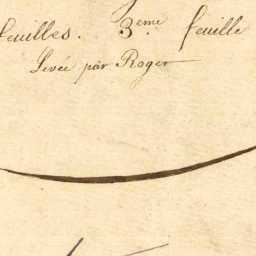 feuilles. 3.eme feuille
Levée par Roger